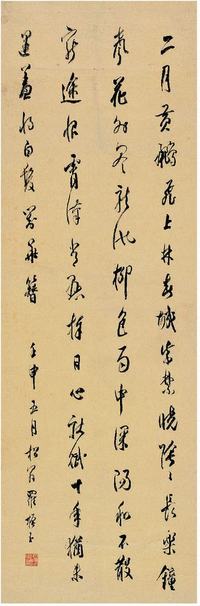 二月黃鸝飛上林春城紫禁曉陰〻長樂鐘
聲花外盡龍池柳色雨中深陽和不散
窮途恨霄漢常懸捧日心獻賦十年猶未
遇羞將白髮對華簪 壬申五月 松羅